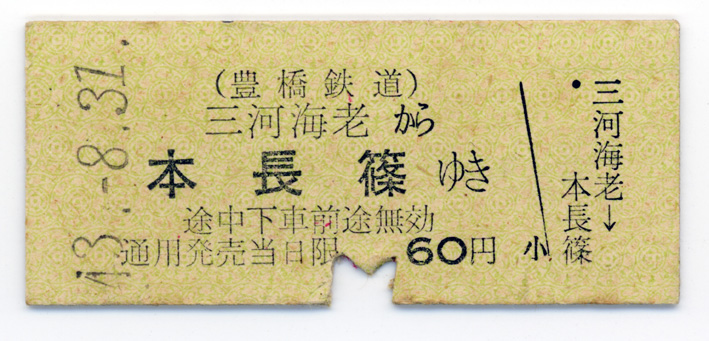 43.-8.31.
(豊橋鉄道)
三河海老から
本長篠ゆき
途中下車前途無効
通用発売当日限 60円
小
・三河海老→
本長篠